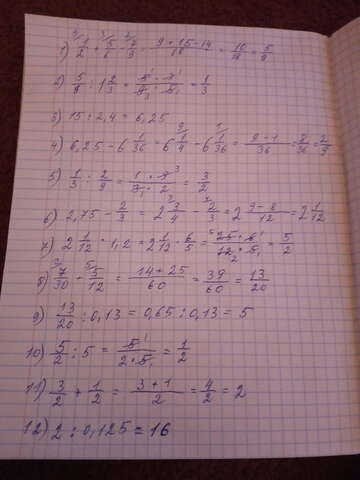 1) 1/2 + 5/6 - 7/9 = (9 + 15 - 14)/18 = 10/18 = 5/9
2) 5/9 : 1 2/3 = (5 · 3)/(9 · 5) = 1/3
3) 15 : 2,4 = 6,25
4) 6,25 - 6 1/36 = 6 1/4 - 6 1/36 = (9 - 1)/36 = 8/36 = 2/9
5) 1/3 : 2/9 = (1 · 9)/(3 · 2) = 3/2
6) 2,75 - 2/3 = 2 3/4 - 2/3 = 2 (9 - 8)/12 = 2 1/12
7) 2 1/12 · 1,2 = 2 1/12 · 6/5 = (25 · 6)/(12 · 5) = 5/2
8) 7/30 + 5/12 = (14 + 25)/60 = 39/60 = 13/20
9) 13/20 : 0,13 = 0,65 : 0,13 = 5
10) 5/2 : 5 = 5/(2 · 5) = 1/2
11) 3/2 + 1/2 = (3 + 1)/2 = 4/2 = 2
12) 2 : 0,125 = 16